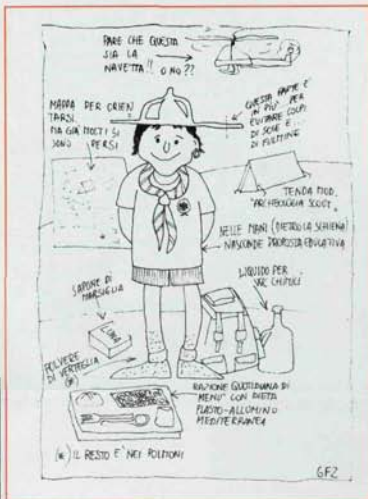 PARE CHE QUESTA
SIA LA
NAVETTA!! O NO??
MAPPA PER ORIEN
TARSI.
MA GIÀ MOLTI SI
SONO PERSI
QUESTA PARTE È
IN PIÙ PER
EVITARE COLPI
DI SOLE E...
DI FULMINE
TENDA MOD.
"ARCHEOLOGIA SCOUT"
NELLE MANI (DIETRO LA SCHIENA)
NASCONDE PROPOSTA EDUCATIVA
SAPONE DI
MARSIGLIA
LIQUIDO PER
WC CHIMICI
POLVERE
DI VERTEGLIA
(*)
RAZIONE QUOTIDIANA DI
MENÙ CON DIETA
PLASTO-ALLUMINO
MEDITERRANEA
(*) IL RESTO E' NEI POLMONI
GFZ